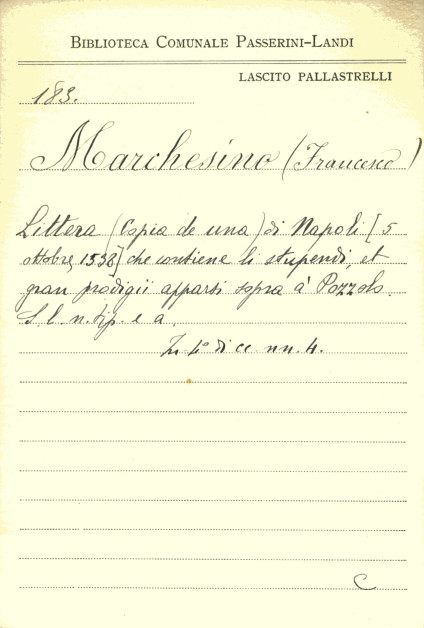 BIBLIOTECA COMUNALE PASSERINI-LANDI
LASCITO PALLASTRELLI
183.
Marchesino (Francesco)
Littera (Copia de una) di Napoli [5
ottobre 1538] che contiene li stupendi, et
gran prodigii apparsi sopra à Pozzolo.
S. l. n. tip. e a.
In 4º di cc. nn. 4.
C